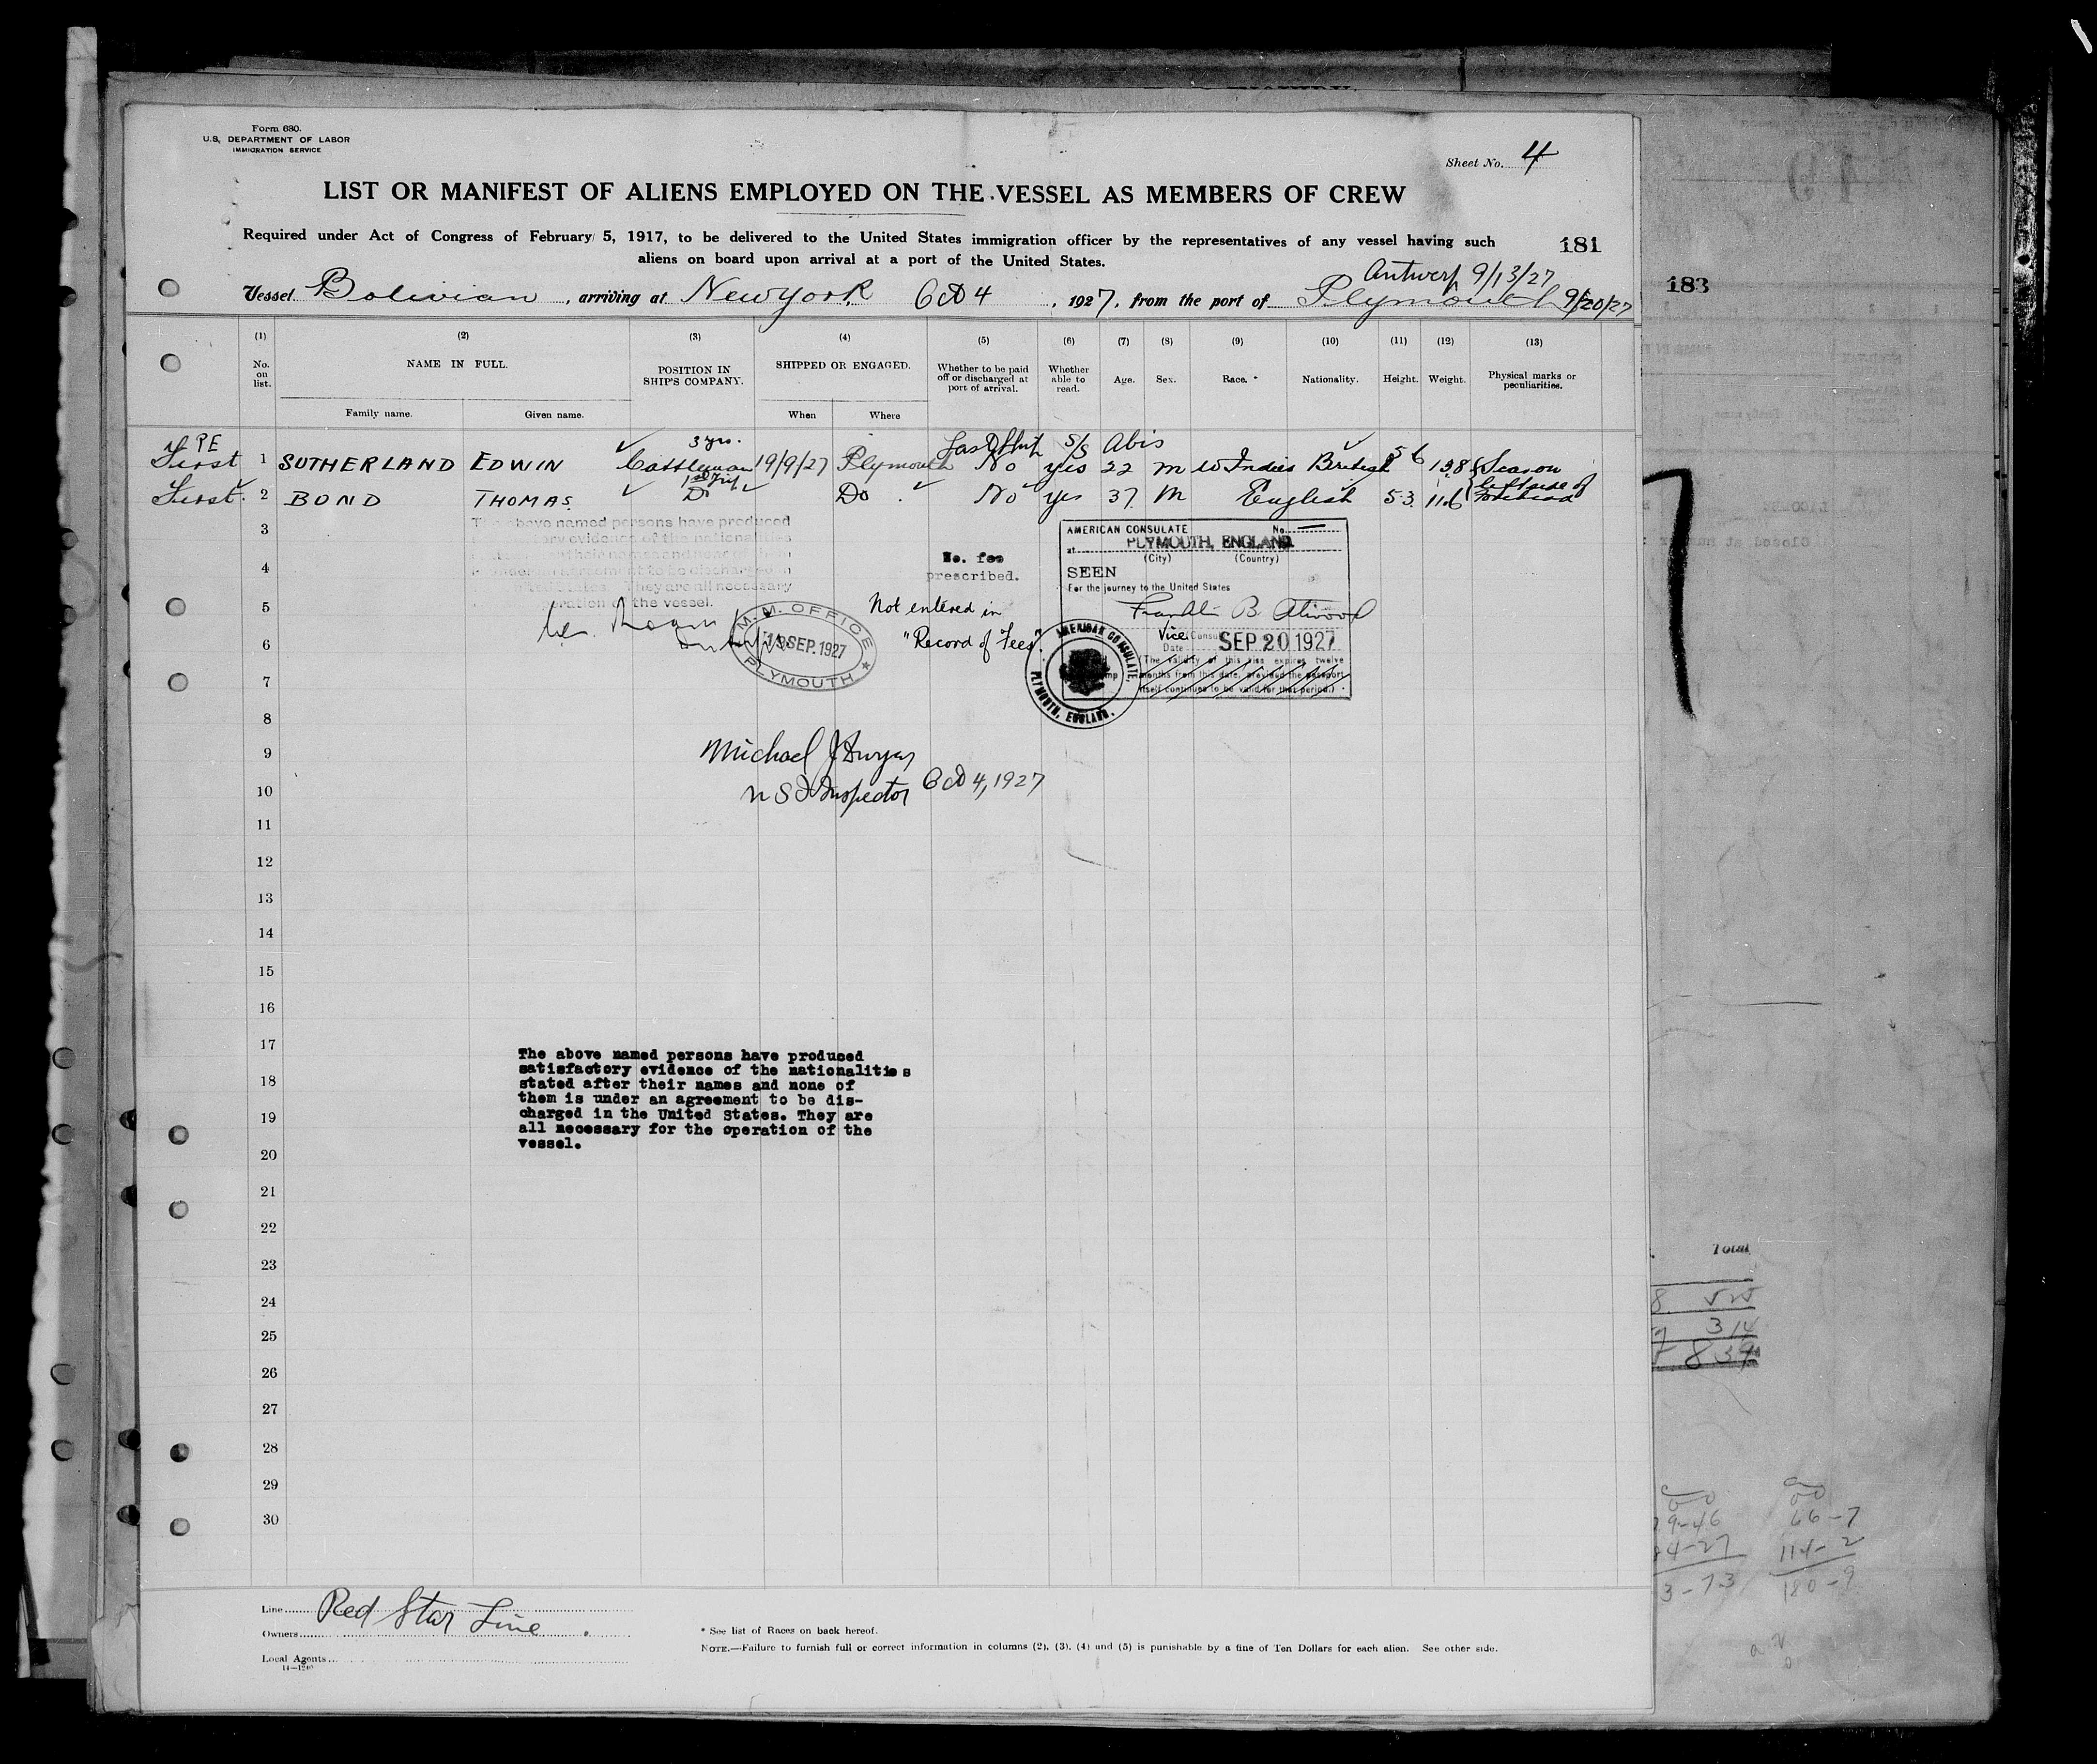 Form 680.
U.S. DEPARTMENT OF LABOR
IMMIGRATION SERVICE
Sheet No. 4
LIST OR MANIFEST OF ALIENS EMPLOYED ON THE VESSEL AS MEMBERS OF CREW
Required under Act of Congress of February 5, 1917, to be delivered to the United States immigration officer by the representatives of any vessel having such
aliens on board upon arrival at a port of the United States.
181
183
Antwerp 9/13/27
Vessel Bolivian, arriving at New York Oct 4, 1927, from the port of Plymouth 9/20/27
(1) (2) (3) (4) (5) (6) (7) (8) (9) (10) (11) (12) (13)
No. on list. NAME IN FULL. POSITION IN SHIP'S COMPANY. SHIPPED OR ENGAGED. Whether to be paid off or discharged at port of arrival. Whether able to read. Age. Sex. Race. * Nationality. Height. Weight. Physical marks or peculiarities.
Family name. Given name. When Where
PE 3 yrs. S/S Abis
First 1 SUTHERLAND EDWIN Cattleman 19/9/27 Plymouth No yes 22 M W Indies British 5 6 138
1st Trip
First 2 BOND THOMAS Do Do No yes 37 M English 5 3 116 left side of forehead
3
4
5
6
7
8
9
10
11
12
13
14
15
16
17
18
19
20
21
22
23
24
25
26
27
28
29
30
The above named persons have produced
evidence of the nationalities
They are all necessary
operation of the vessel.
No. fee
prescribed.
Not entered in
"Record of Fees".
M.M. OFFICE
19 SEP. 1927
PLYMOUTH
AMERICAN CONSULATE No.
at PLYMOUTH, ENGLAND.
(City) (Country)
SEEN
For the journey to the United States
Franklin B Atwood
Vice Consul
Date SEP 20 1927
(The validity of this visa expires twelve
months from this date, provided the passport
itself continues to be valid for that period.)
AMERICAN CONSULATE,
PLYMOUTH, ENGLAND.
Michael J Dwyer
Inspector Oct 4, 1927
The above named persons have produced
satisfactory evidence of the nationalities
stated after their names and none of
them is under an agreement to be dis-
charged in the United States. They are
all necessary for the operation of the
vessel.
Total
314
839
9-46
4-27
3-73
66-7
114-2
180-9
Line Red Star Line
Owners
Local Agents
14—1240
* See list of Races on back hereof.
NOTE.—Failure to furnish full or correct information in columns (2), (3), (4) and (5) is punishable by a fine of Ten Dollars for each alien. See other side.